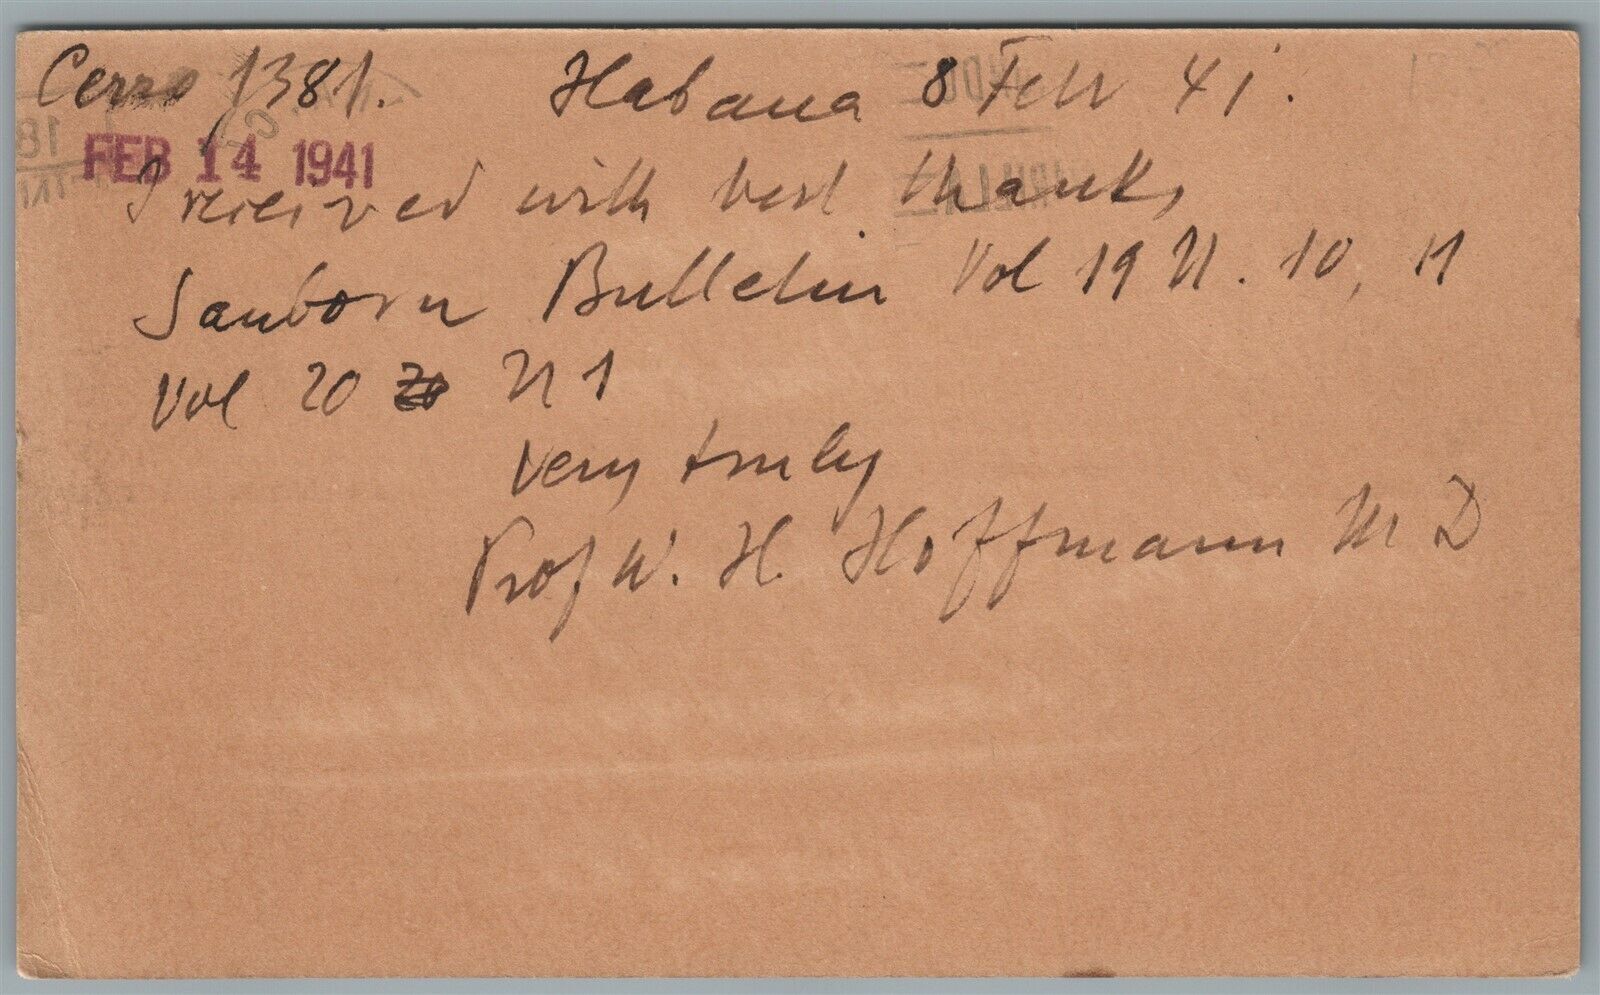 Cerro 1381. Habana 8 Febr 41.
FEB 14 1941
I received with best thanks
Sanborn Bulletin Vol 19 N. 10, 11
Vol 20 N 1
very truly
Prof W. H. Hoffmann M D